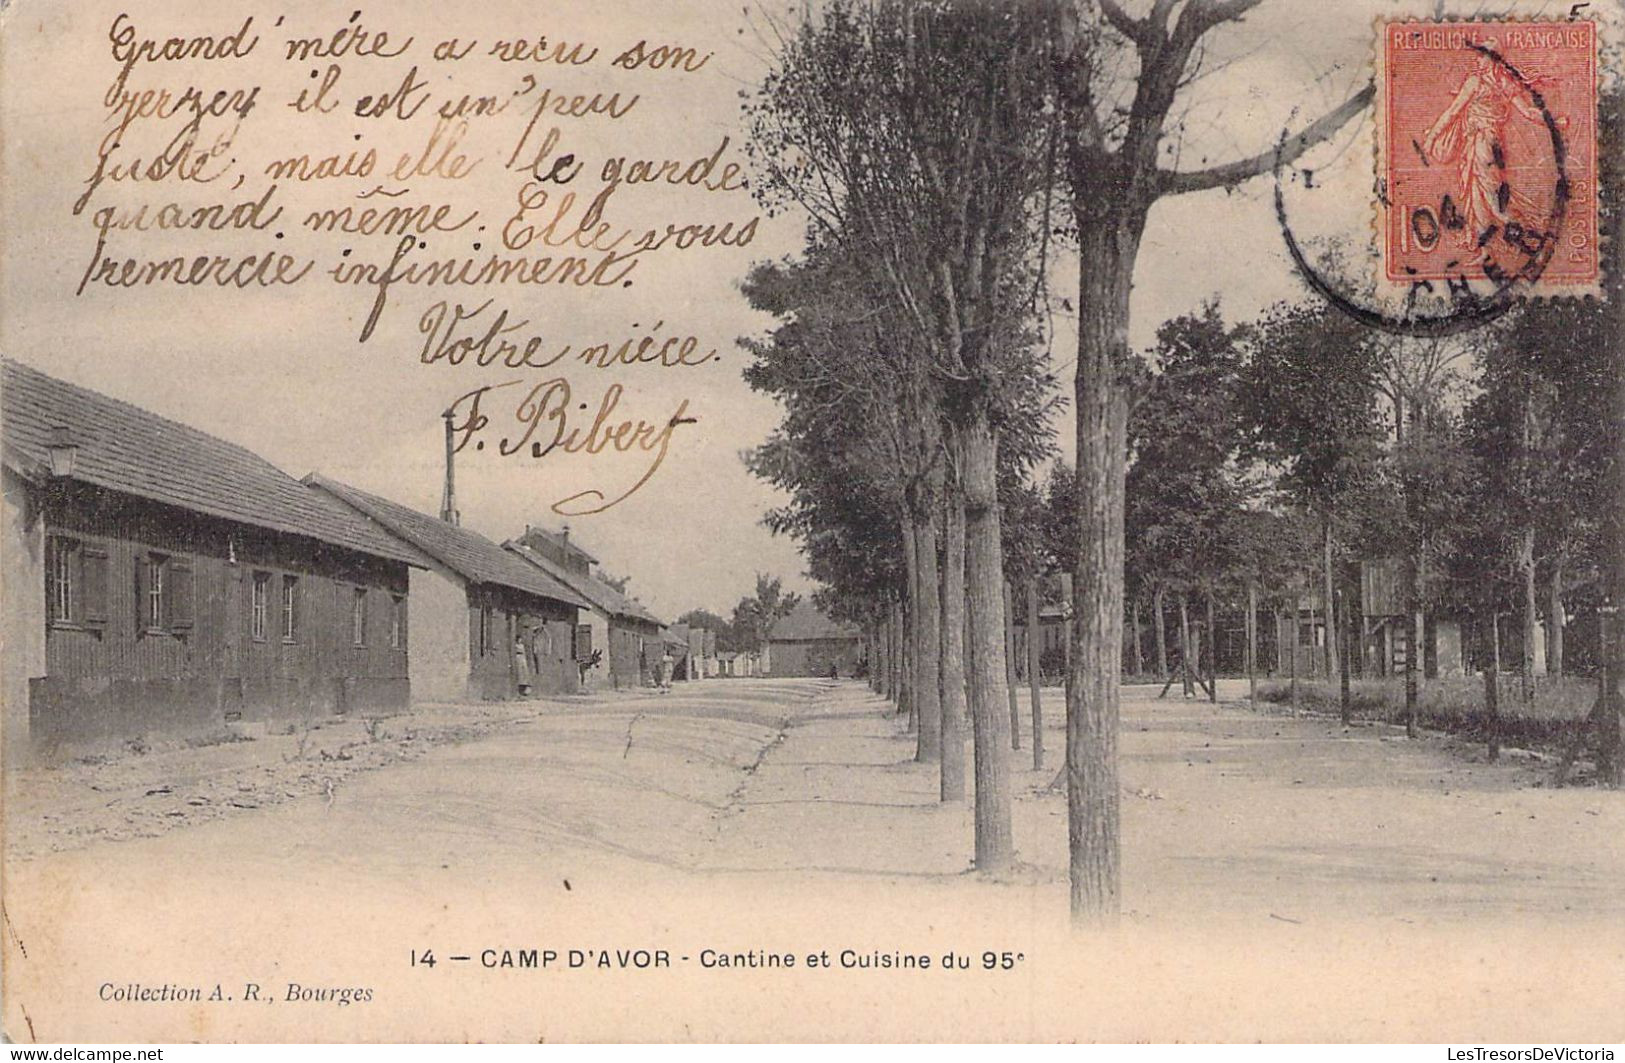 Grand'mére a reçu son
jerzey il est un'peu
juste, mais elle le garde
quand même. Elle vous
remercie infiniment.
Votre niéce.
F. Bibert
REPUBLIQUE FRANÇAISE
10
POSTES
04
CHER
14 — CAMP D'AVOR - Cantine et Cuisine du 95e
Collection A. R., Bourges
delcampe.net
LesTresorsDeVictoria